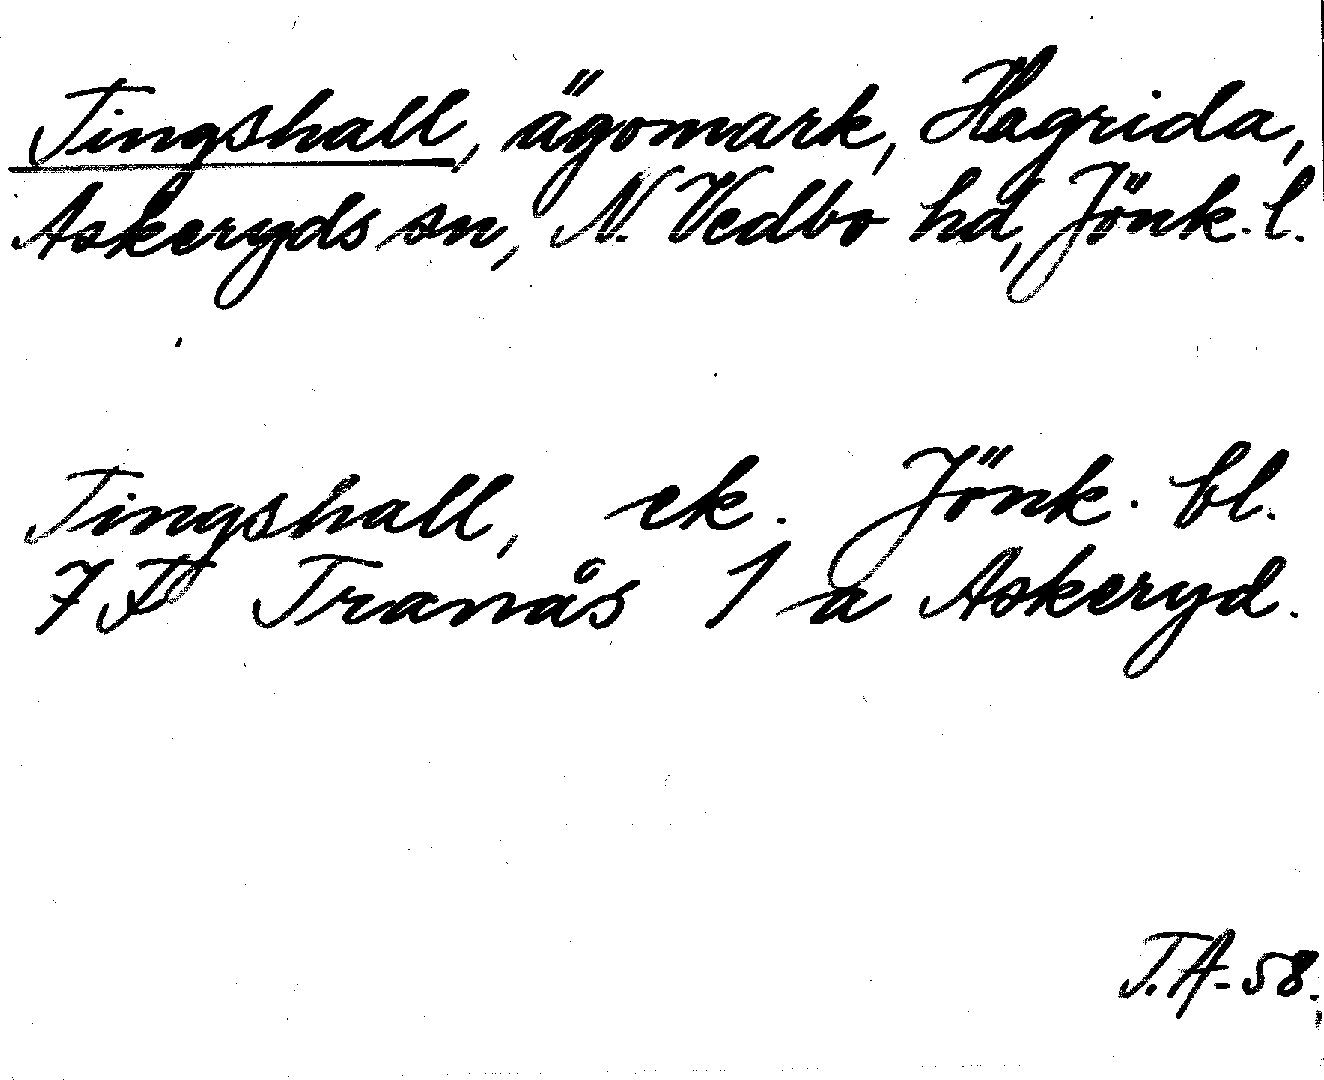 Tingshall, ägomark, Hagrida,
Askeryds sn, N. Vedbo hd, Jönk. l.
Tingshall, ek. Jönk. bl.
7 F Tranås 1 a Askeryd.
T.A-58.